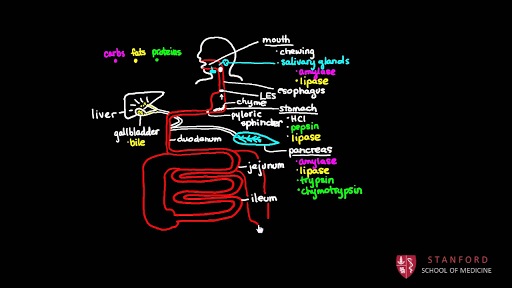 mouth
· chewing
· salivary glands
· amylase
· lipase
carbs fats proteins
esophagus
LES
chyme
stomach
· HCl
· pepsin
· lipase
pyloric
sphincter
liver
gallbladder
· bile
duodenum
pancreas
· amylase
· lipase
· trypsin
· chymotrypsin
jejunum
ileum
STANFORD
SCHOOL OF MEDICINE